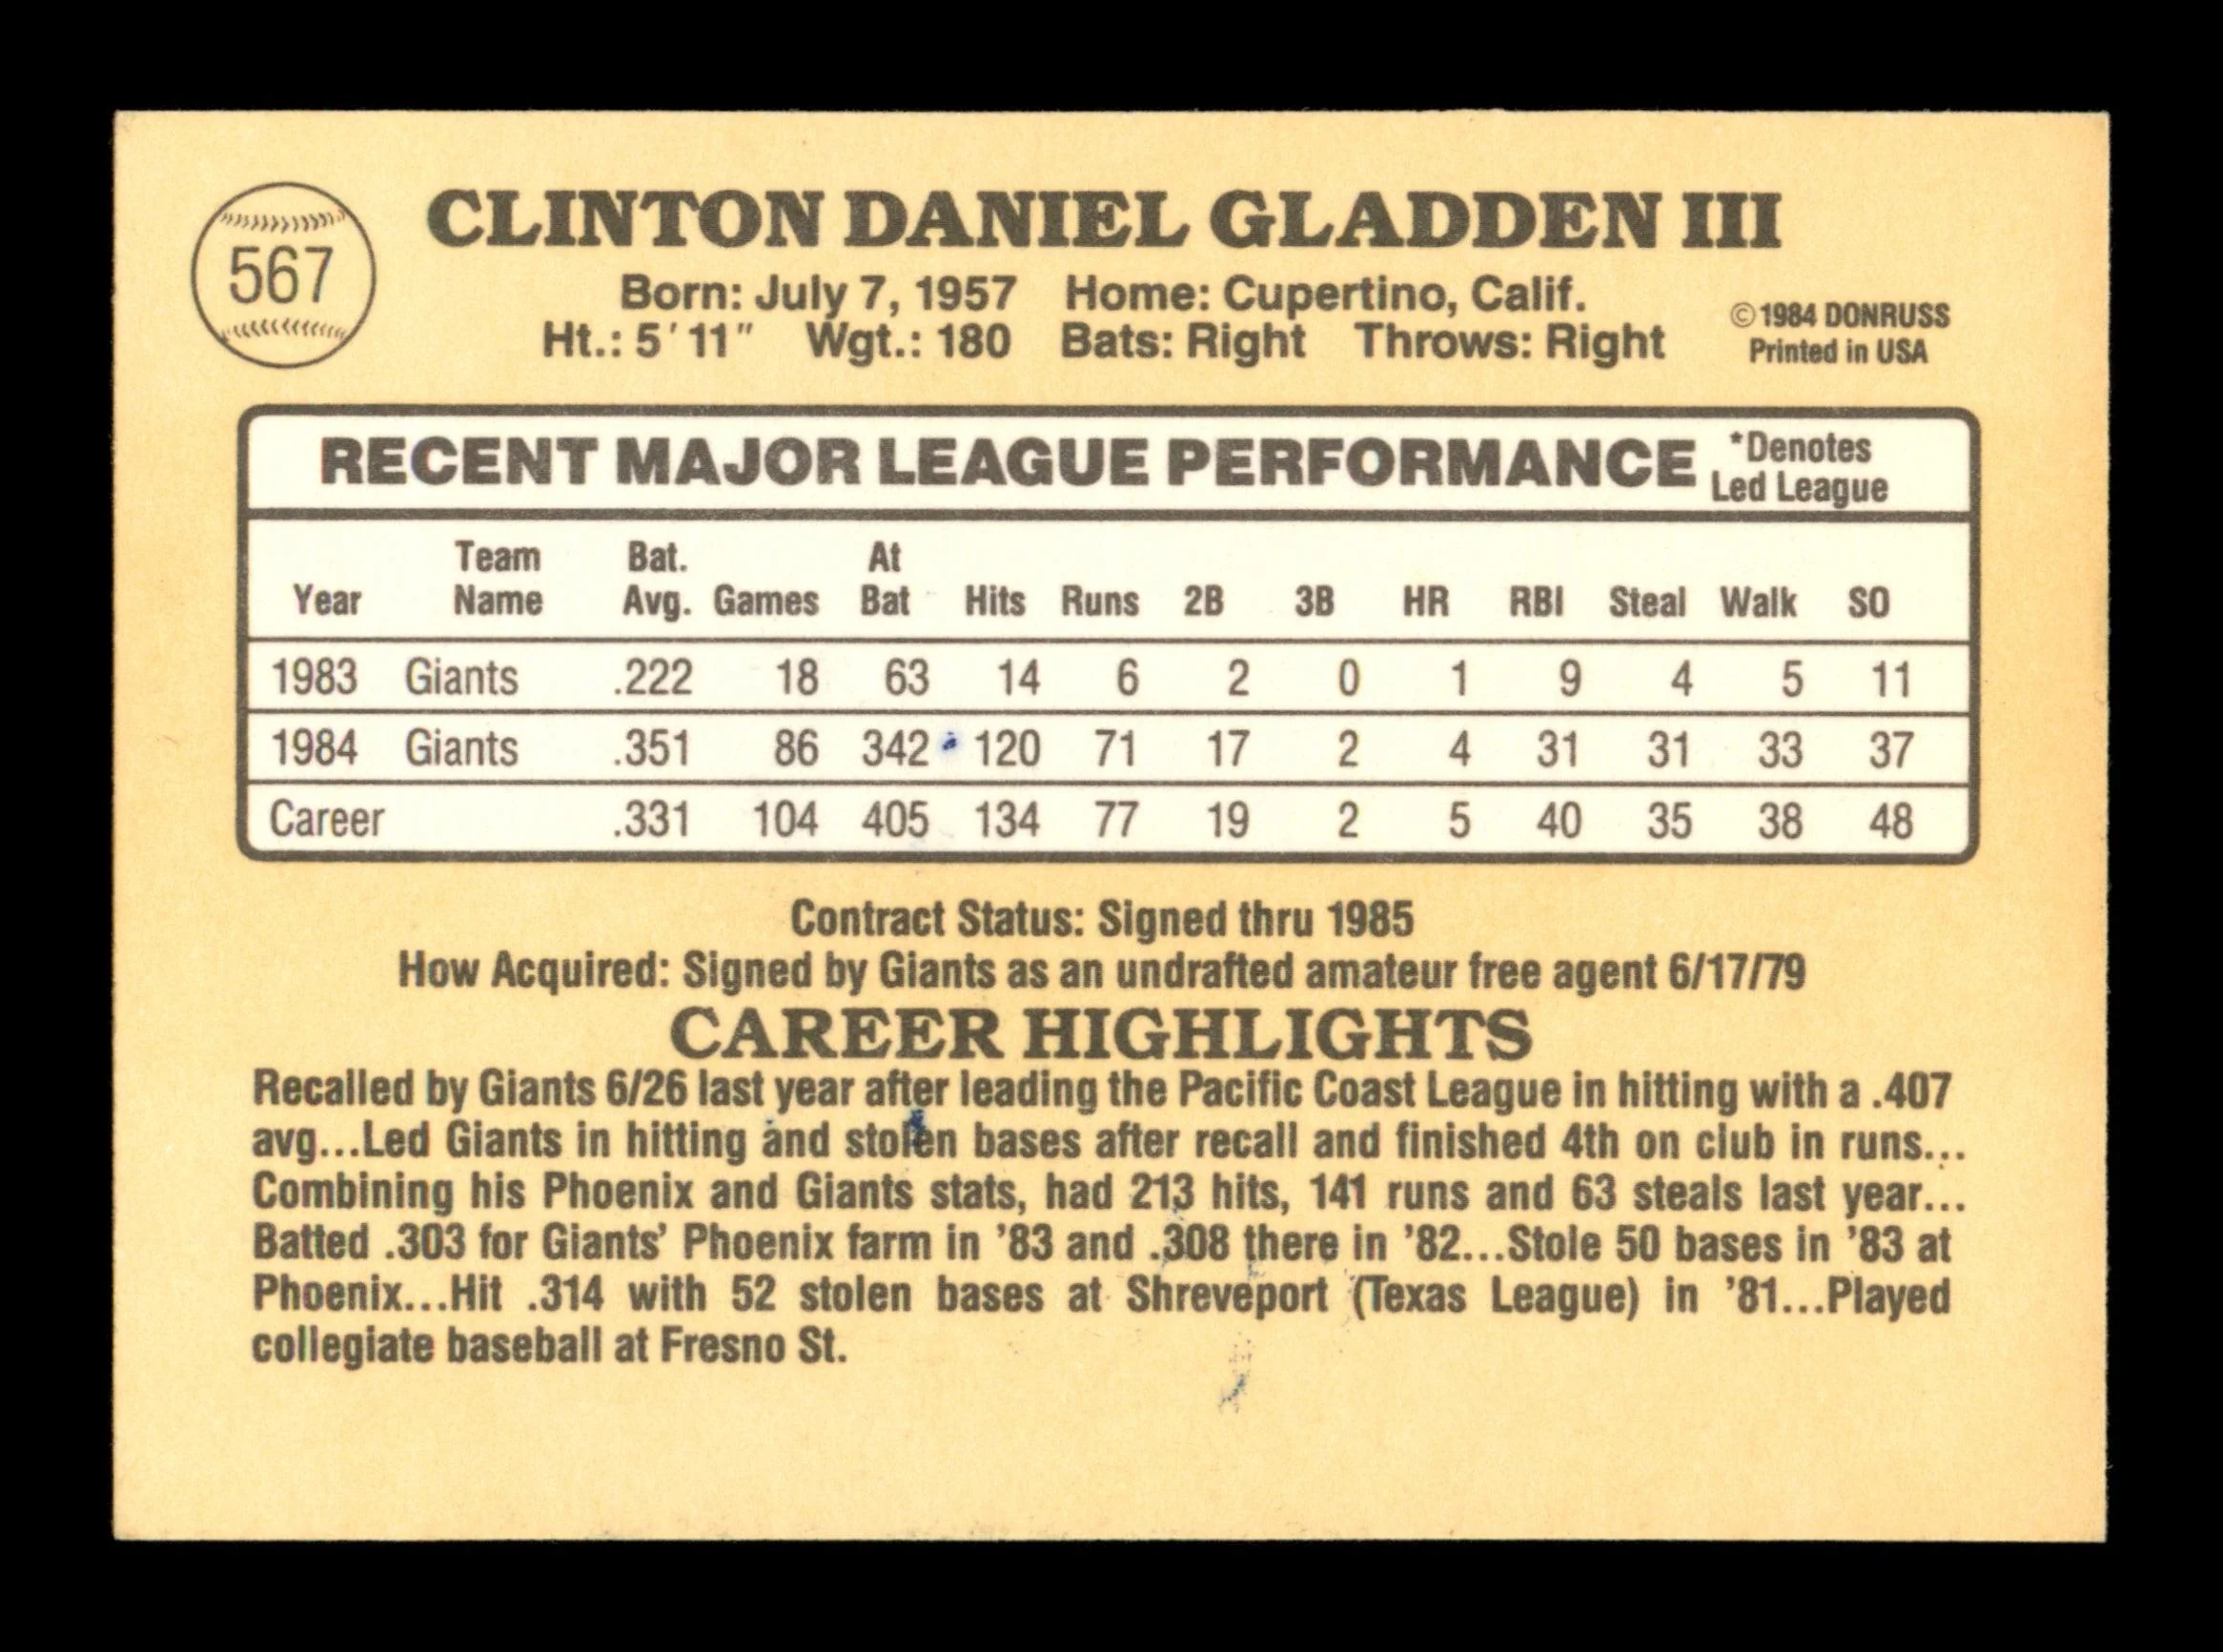 567
CLINTON DANIEL GLADDEN III
Born: July 7, 1957 Home: Cupertino, Calif.
Ht.: 5'11" Wgt.: 180 Bats: Right Throws: Right
©1984 DONRUSS
Printed in USA
RECENT MAJOR LEAGUE PERFORMANCE *Denotes Led League
Year Team Name Bat. Avg. Games At Bat Hits Runs 2B 3B HR RBI Steal Walk SO
1983 Giants .222 18 63 14 6 2 0 1 9 4 5 11
1984 Giants .351 86 342 120 71 17 2 4 31 31 33 37
Career .331 104 405 134 77 19 2 5 40 35 38 48
Contract Status: Signed thru 1985
How Acquired: Signed by Giants as an undrafted amateur free agent 6/17/79
CAREER HIGHLIGHTS
Recalled by Giants 6/26 last year after leading the Pacific Coast League in hitting with a .407
avg...Led Giants in hitting and stolen bases after recall and finished 4th on club in runs...
Combining his Phoenix and Giants stats, had 213 hits, 141 runs and 63 steals last year...
Batted .303 for Giants' Phoenix farm in '83 and .308 there in '82...Stole 50 bases in '83 at
Phoenix...Hit .314 with 52 stolen bases at Shreveport (Texas League) in '81...Played
collegiate baseball at Fresno St.